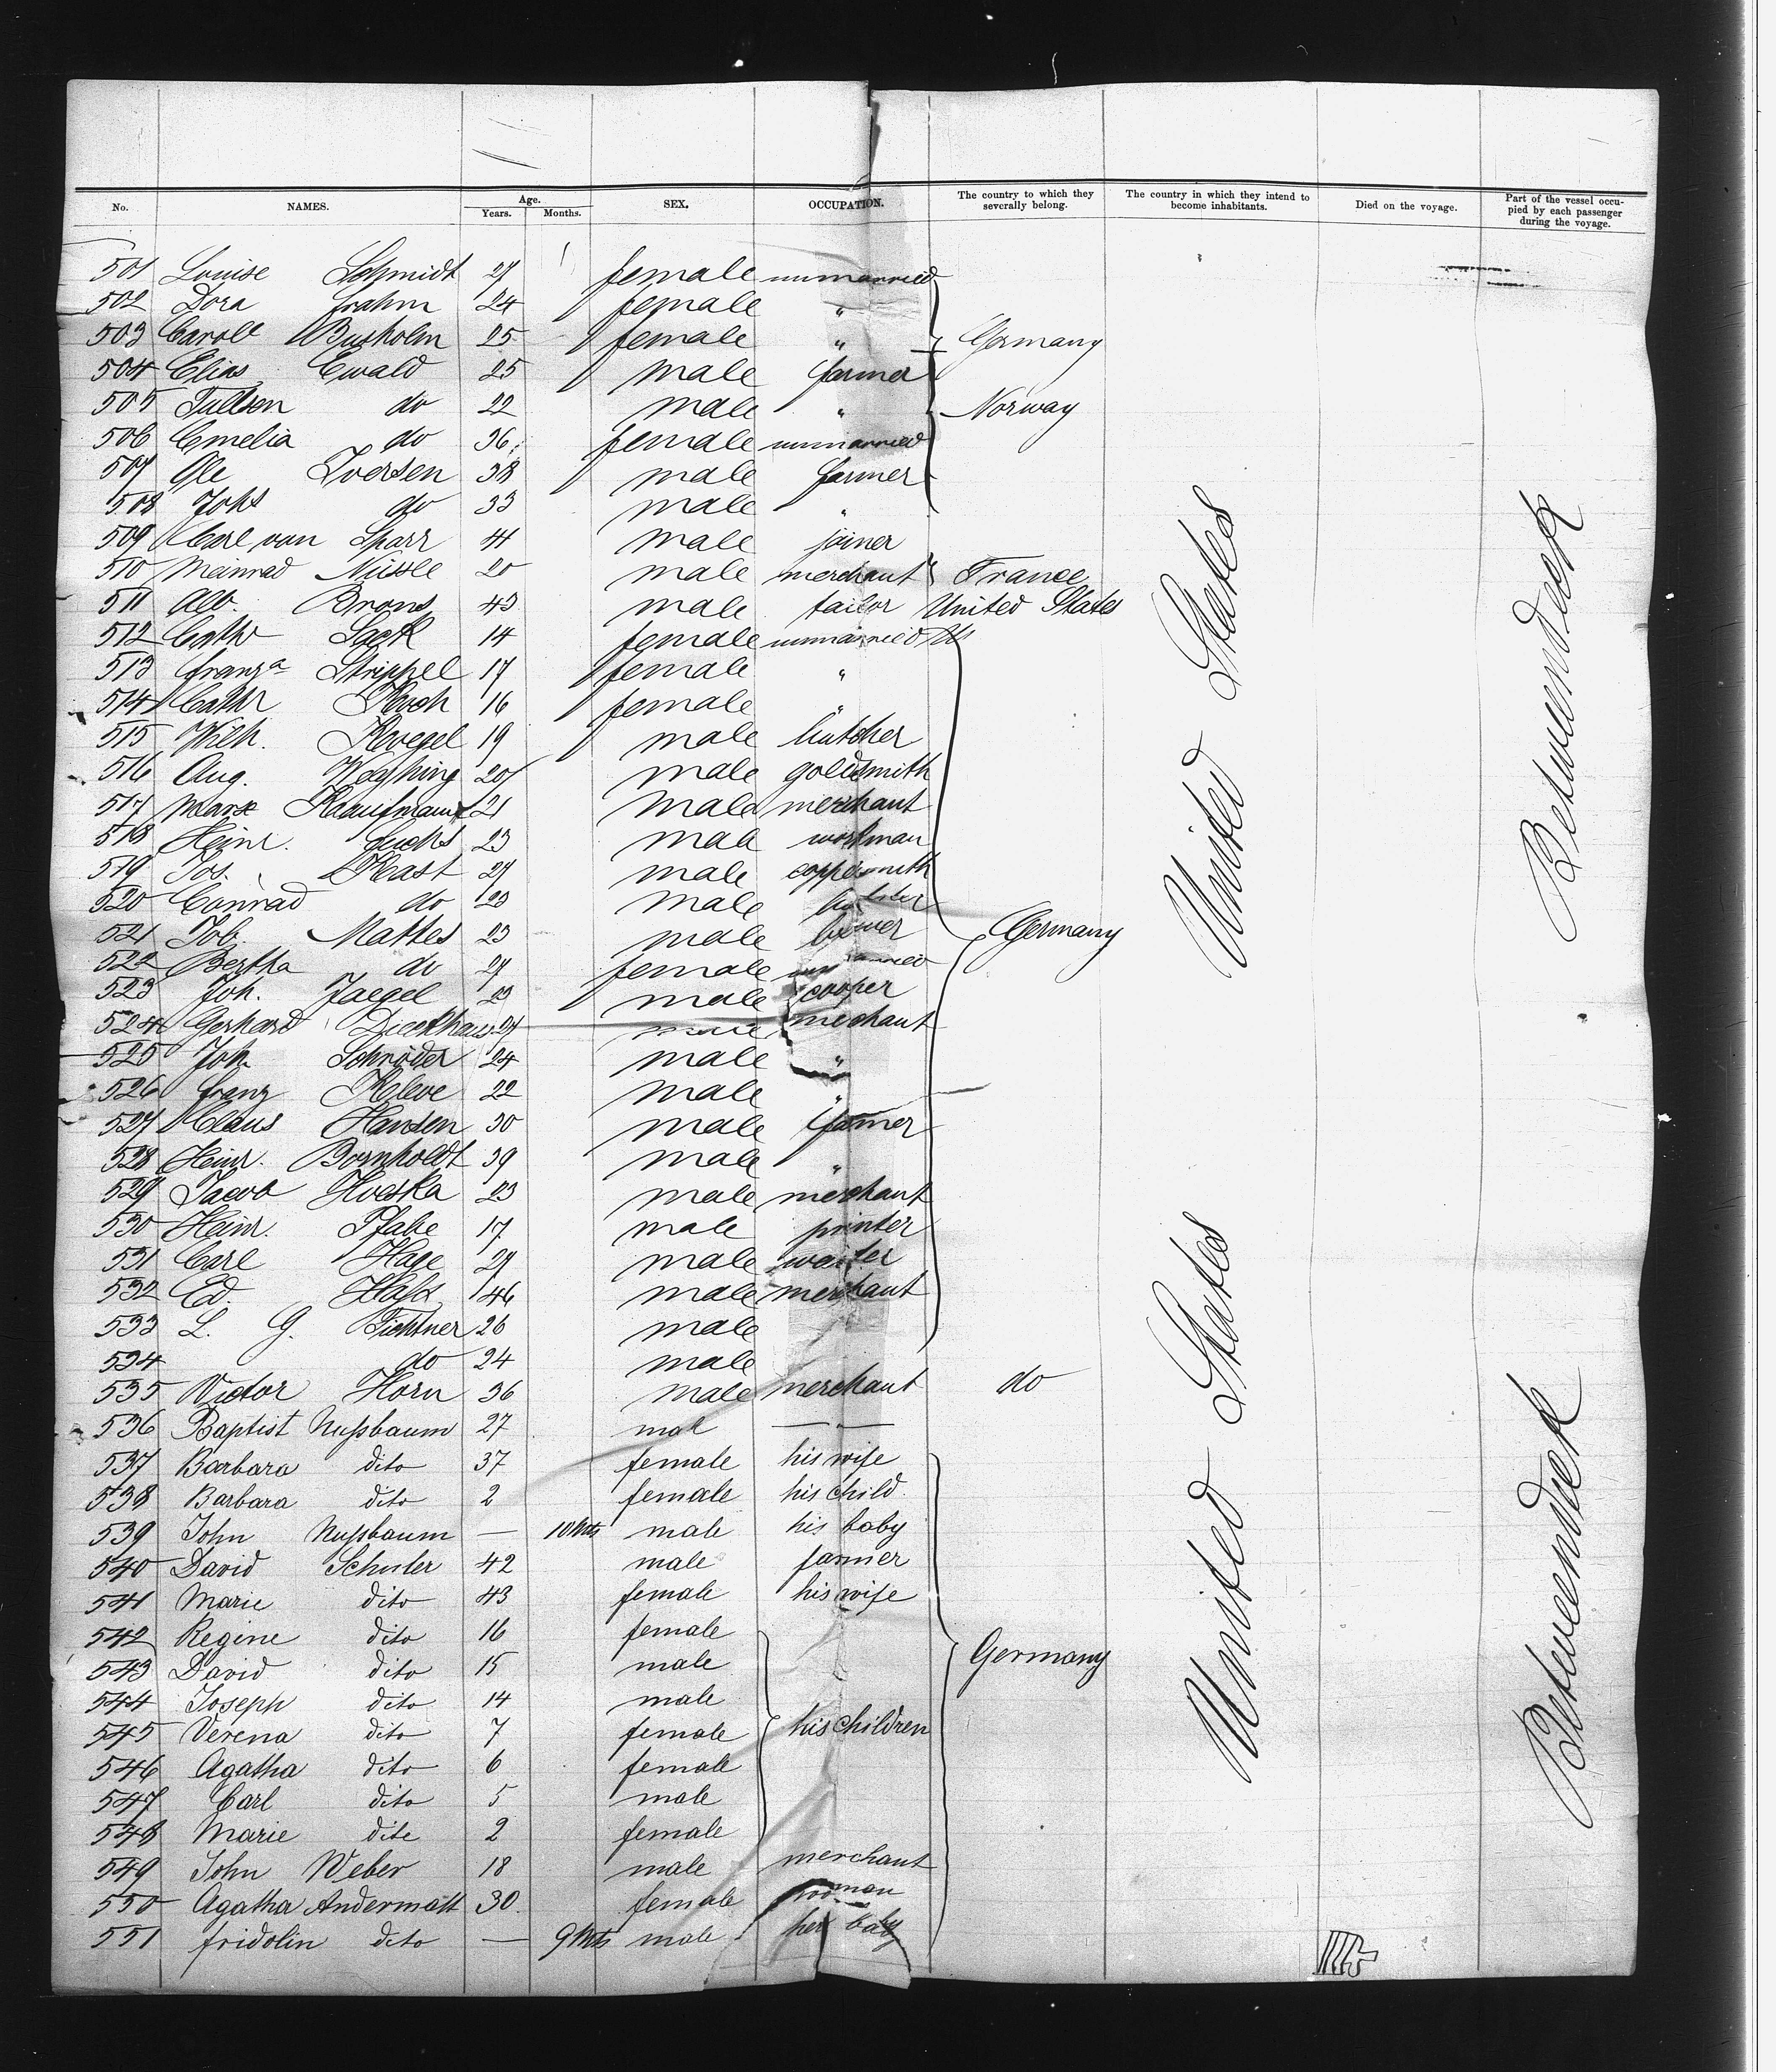 No. NAMES. Age. Years. Months. SEX. OCCUPATION. The country to which they severally belong. The country in which they intend to become inhabitants. Died on the voyage. Part of the vessel occupied by each passenger during the voyage.
501 Louise Schmidt 27 female unmarried
502 Dora Frahm 24 female "
503 Carol Busholm 25 female " Germany
504 Elias Ewald 25 male farmer
505 Tallsen do 22 male " Norway
506 Emelia do 36 female unmarried
507 Ole Iversen 38 male farmer
508 Johs do 33 male "
509 Carl van Sparr 41 male joiner
510 Meinrad Nüssle 20 male merchant France
511 Alb. Brons 43 male tailor United States
512 Cathr Sack 14 female unmarried
513 Franza Strippel 17 female "
514 Cathr Koch 16 female "
515 Wilh. Kroegel 19 male butcher
516 Aug. 20 male goldsmith
517 Marx Kaaufmann 21 male merchant
518 Heinr. Fuchs 23 male workman
519 Jos. Kast 27 male coppersmith
520 Conrad do 23 male
521 Joh. Mattes 23 male Germany
522 Bertha do 27 female
523 Joh. Jaegel 23 male cooper
524 Gerhard Dieckhaus 27 male merchant
525 Joh. Schröder 24 male "
526 Franz Kleve 22 male "
527 Claus Hansen 30 male farmer
528 Heinr. Bornholdt 39 male "
529 Jacob Hoeska 23 male merchant
530 Heinr. Pfabe 17 male printer
531 Carl Hage 27 male waiter
532 Ed. 46 male merchant
533 L. G. Fichtner 26 male
534 do 24 male
535 Victor Horn 36 male merchant do
536 Baptist Nußbaum 27 mal — " —
537 Barbara dito 37 female his wife
538 Barbara dito 2 female his child
539 John Nußbaum — 10 Mts male his baby
540 David Schuler 42 male farmer
541 Marie dito 43 female his wife
542 Regine dito 16 female
543 David dito 15 male Germany
544 Joseph dito 14 male
545 Verena dito 7 female his children
546 Agatha dito 6 female
547 Carl dito 5 male
548 Marie dite 2 female
549 John Weber 18 male merchant
550 Agatha Andermatt 30 female
551 Fridolin dito — 9 Mts male her baby
United States
United States
Betweendeck
Betweendeck